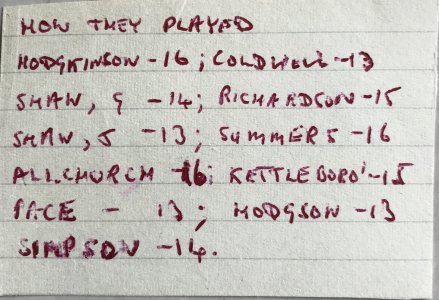 HOW THEY PLAYED
HODGKINSON - 16; COLDWELL - 13
SHAW, G - 14; RICHARDSON - 15
SHAW, J - 13; SUMMERS - 16
ALLCHURCH - 16; KETTLEBORO' - 15
PACE - 13; HODGSON - 13
SIMPSON - 14.